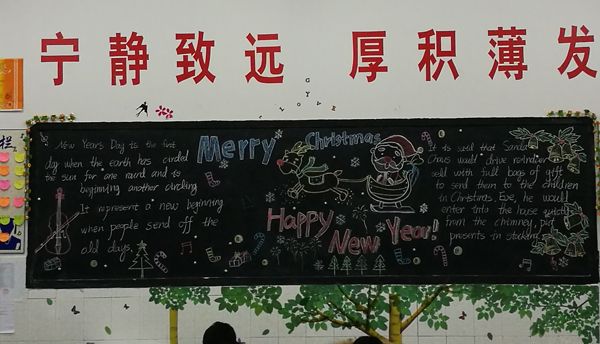 宁静致远 厚积薄发
New Year's Day is the first
day when the earth has circled
the sun for one round and is
beginning another circling
It represent a new beginning
when people send off the
old days.
Merry Christmas
Happy
New Year!
It is said that Santa
Claus would drive reindeer
with full bags of gift
to send them to the children
in Christmas Eve, he would
enter into the house quietly
from the chimney, put
presents in stocking
栏